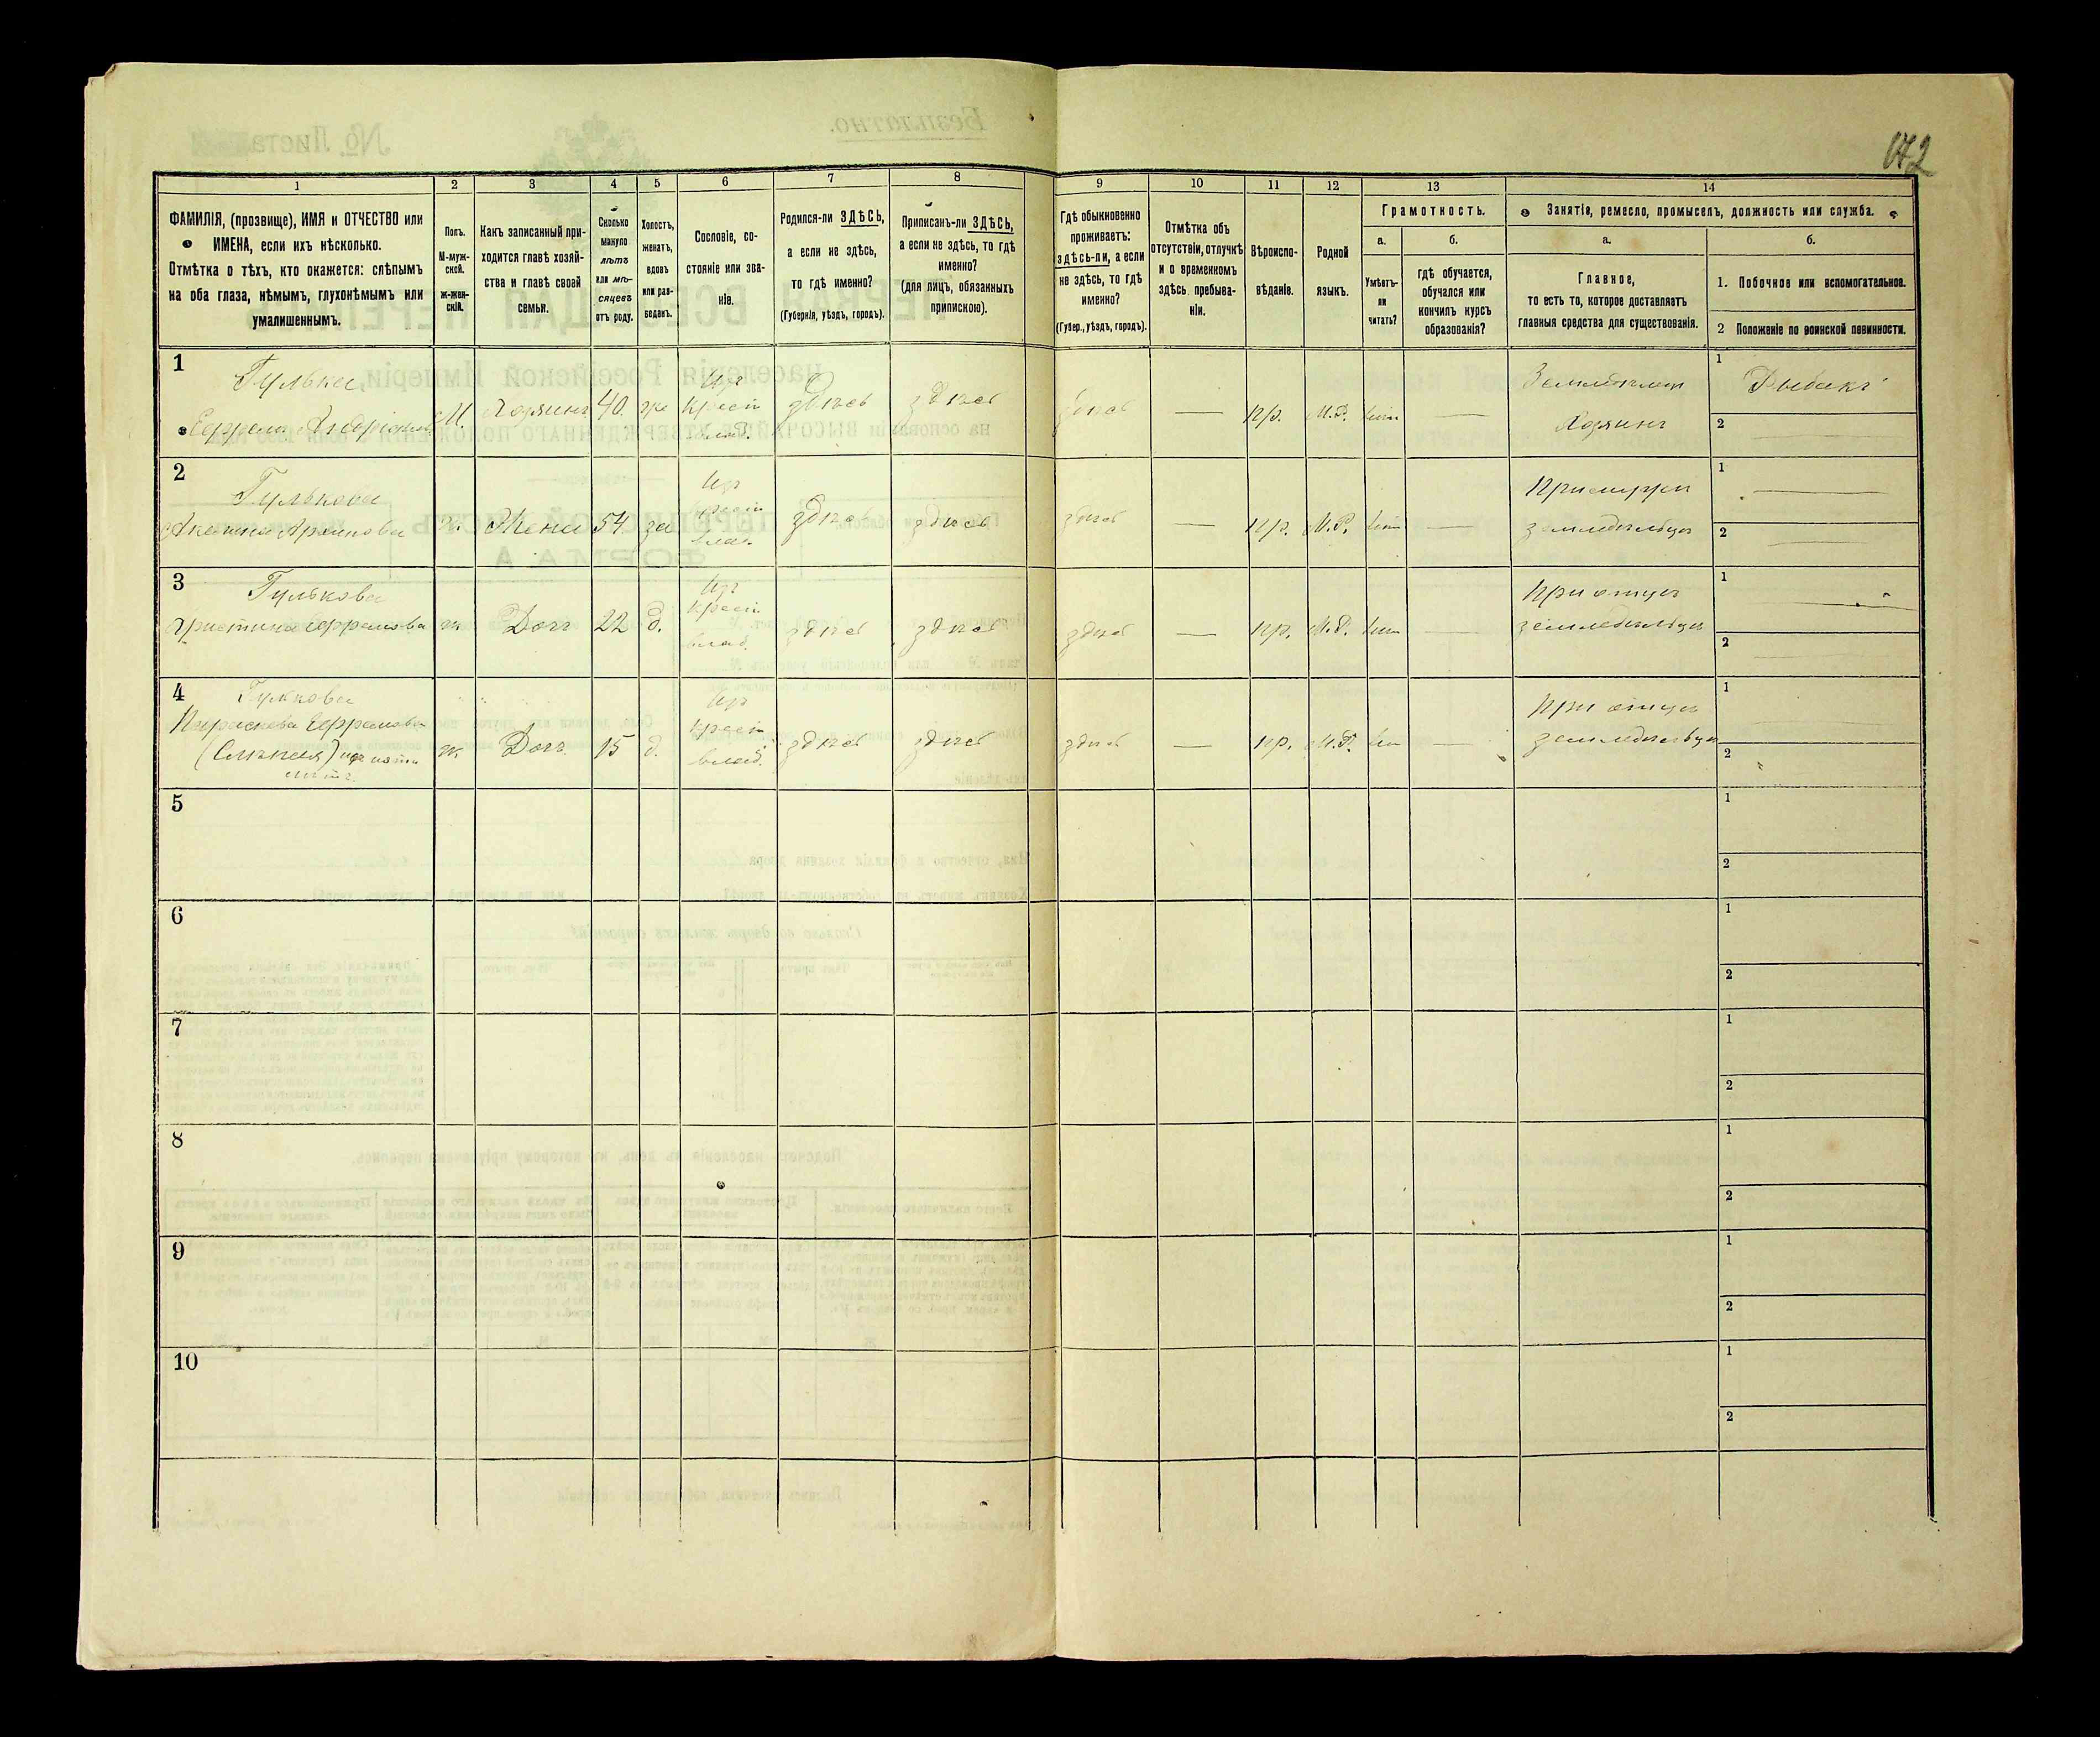 172
1
2
3
4
5
6
7
8
9
10
11
12
13
14
ФАМИЛІЯ, (прозвище), ИМЯ и ОТЧЕСТВО или
ИМЕНА, если ихъ нѣсколько.
Отмѣтка о тѣхъ, кто окажется: слѣпымъ
на оба глаза, нѣмымъ, глухонѣмымъ или
умалишеннымъ.
Полъ.
М-муж-
ской.
ж-жен-
скій.
Какъ записанный при-
ходится главѣ хозяй-
ства и главѣ своей
семьи.
Сколько
минуло
лѣтъ
или мѣ-
сяцевъ
отъ роду.
Холостъ,
женатъ,
вдовъ
или раз-
веденъ.
Сословіе, со-
стояніе или зва-
ніе.
Родился-ли ЗДѢСЬ,
а если не здѣсь,
то гдѣ именно?
(Губернія, уѣздъ, городъ).
Приписанъ-ли ЗДѢСЬ,
а если не здѣсь, то гдѣ
именно?
(для лицъ, обязанныхъ
припискою).
Гдѣ обыкновенно
проживаетъ:
здѣсь-ли, а если
не здѣсь, то гдѣ
именно?
(Губер., уѣздъ, городъ).
Отмѣтка объ
отсутствіи, отлучкѣ
и о временномъ
здѣсь пребыва-
ніи.
Вѣроиспо-
вѣданіе.
Родной
языкъ.
Грамотность.
а.
Умѣетъ-
ли
читать?
б.
гдѣ обучается,
обучался или
кончилъ курсъ
образованія?
Занятіе, ремесло, промыселъ, должность или служба.
а.
Главное,
то есть то, которое доставляетъ
главныя средства для существованія.
б.
1. Побочное или вспомогательное.
2 Положеніе по воинской повинности.
1
Гулька
Ефрем
М.
Хозяинъ
40.
же
Изъ
крест
влад.
здѣсь
здѣсь
здѣсь
—
пр.
М.Р.
нѣт
—
Хозяинъ
1
Рыбакъ
2
2
Гулькова
ж.
Жена
54
за
Изъ
крест
влад.
здѣсь
здѣсь
здѣсь
—
пр.
М.Р.
нѣт
—
земледѣльцъ
1
2
3
Гулькова
Христина Ефремова
ж
Доч
22
д.
Изъ
крест
влад.
здѣсь
здѣсь
здѣсь
—
пр.
М.Р.
нѣт
—
При отцъ
земледѣльцъ
1
2
4
Гулькова
Параскева Ефремова
(Слѣпая)
ж
Доч
15
д.
Изъ
крест
влад.
здѣсь
здѣсь
здѣсь
—
пр.
М.Р.
нѣт
—
При отцъ
земледѣльцъ
1
2
5
1
2
6
1
2
7
1
2
8
1
2
9
1
2
10
1
2